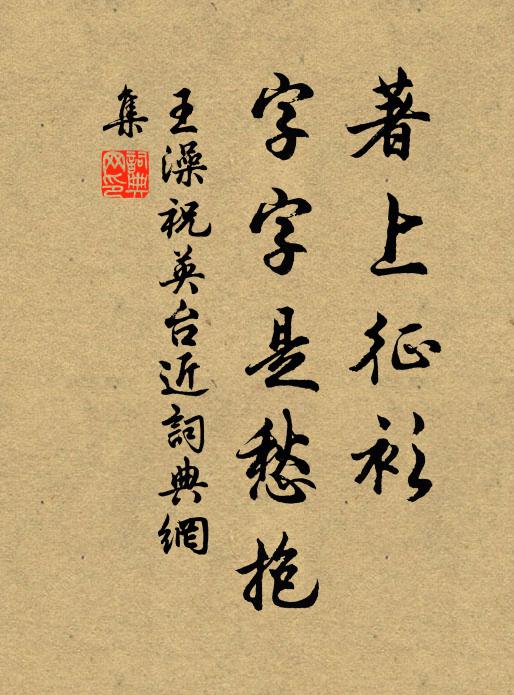 著上征衫
字字是愁抱
王澡祝英台近詞典網
集
詞典
网印